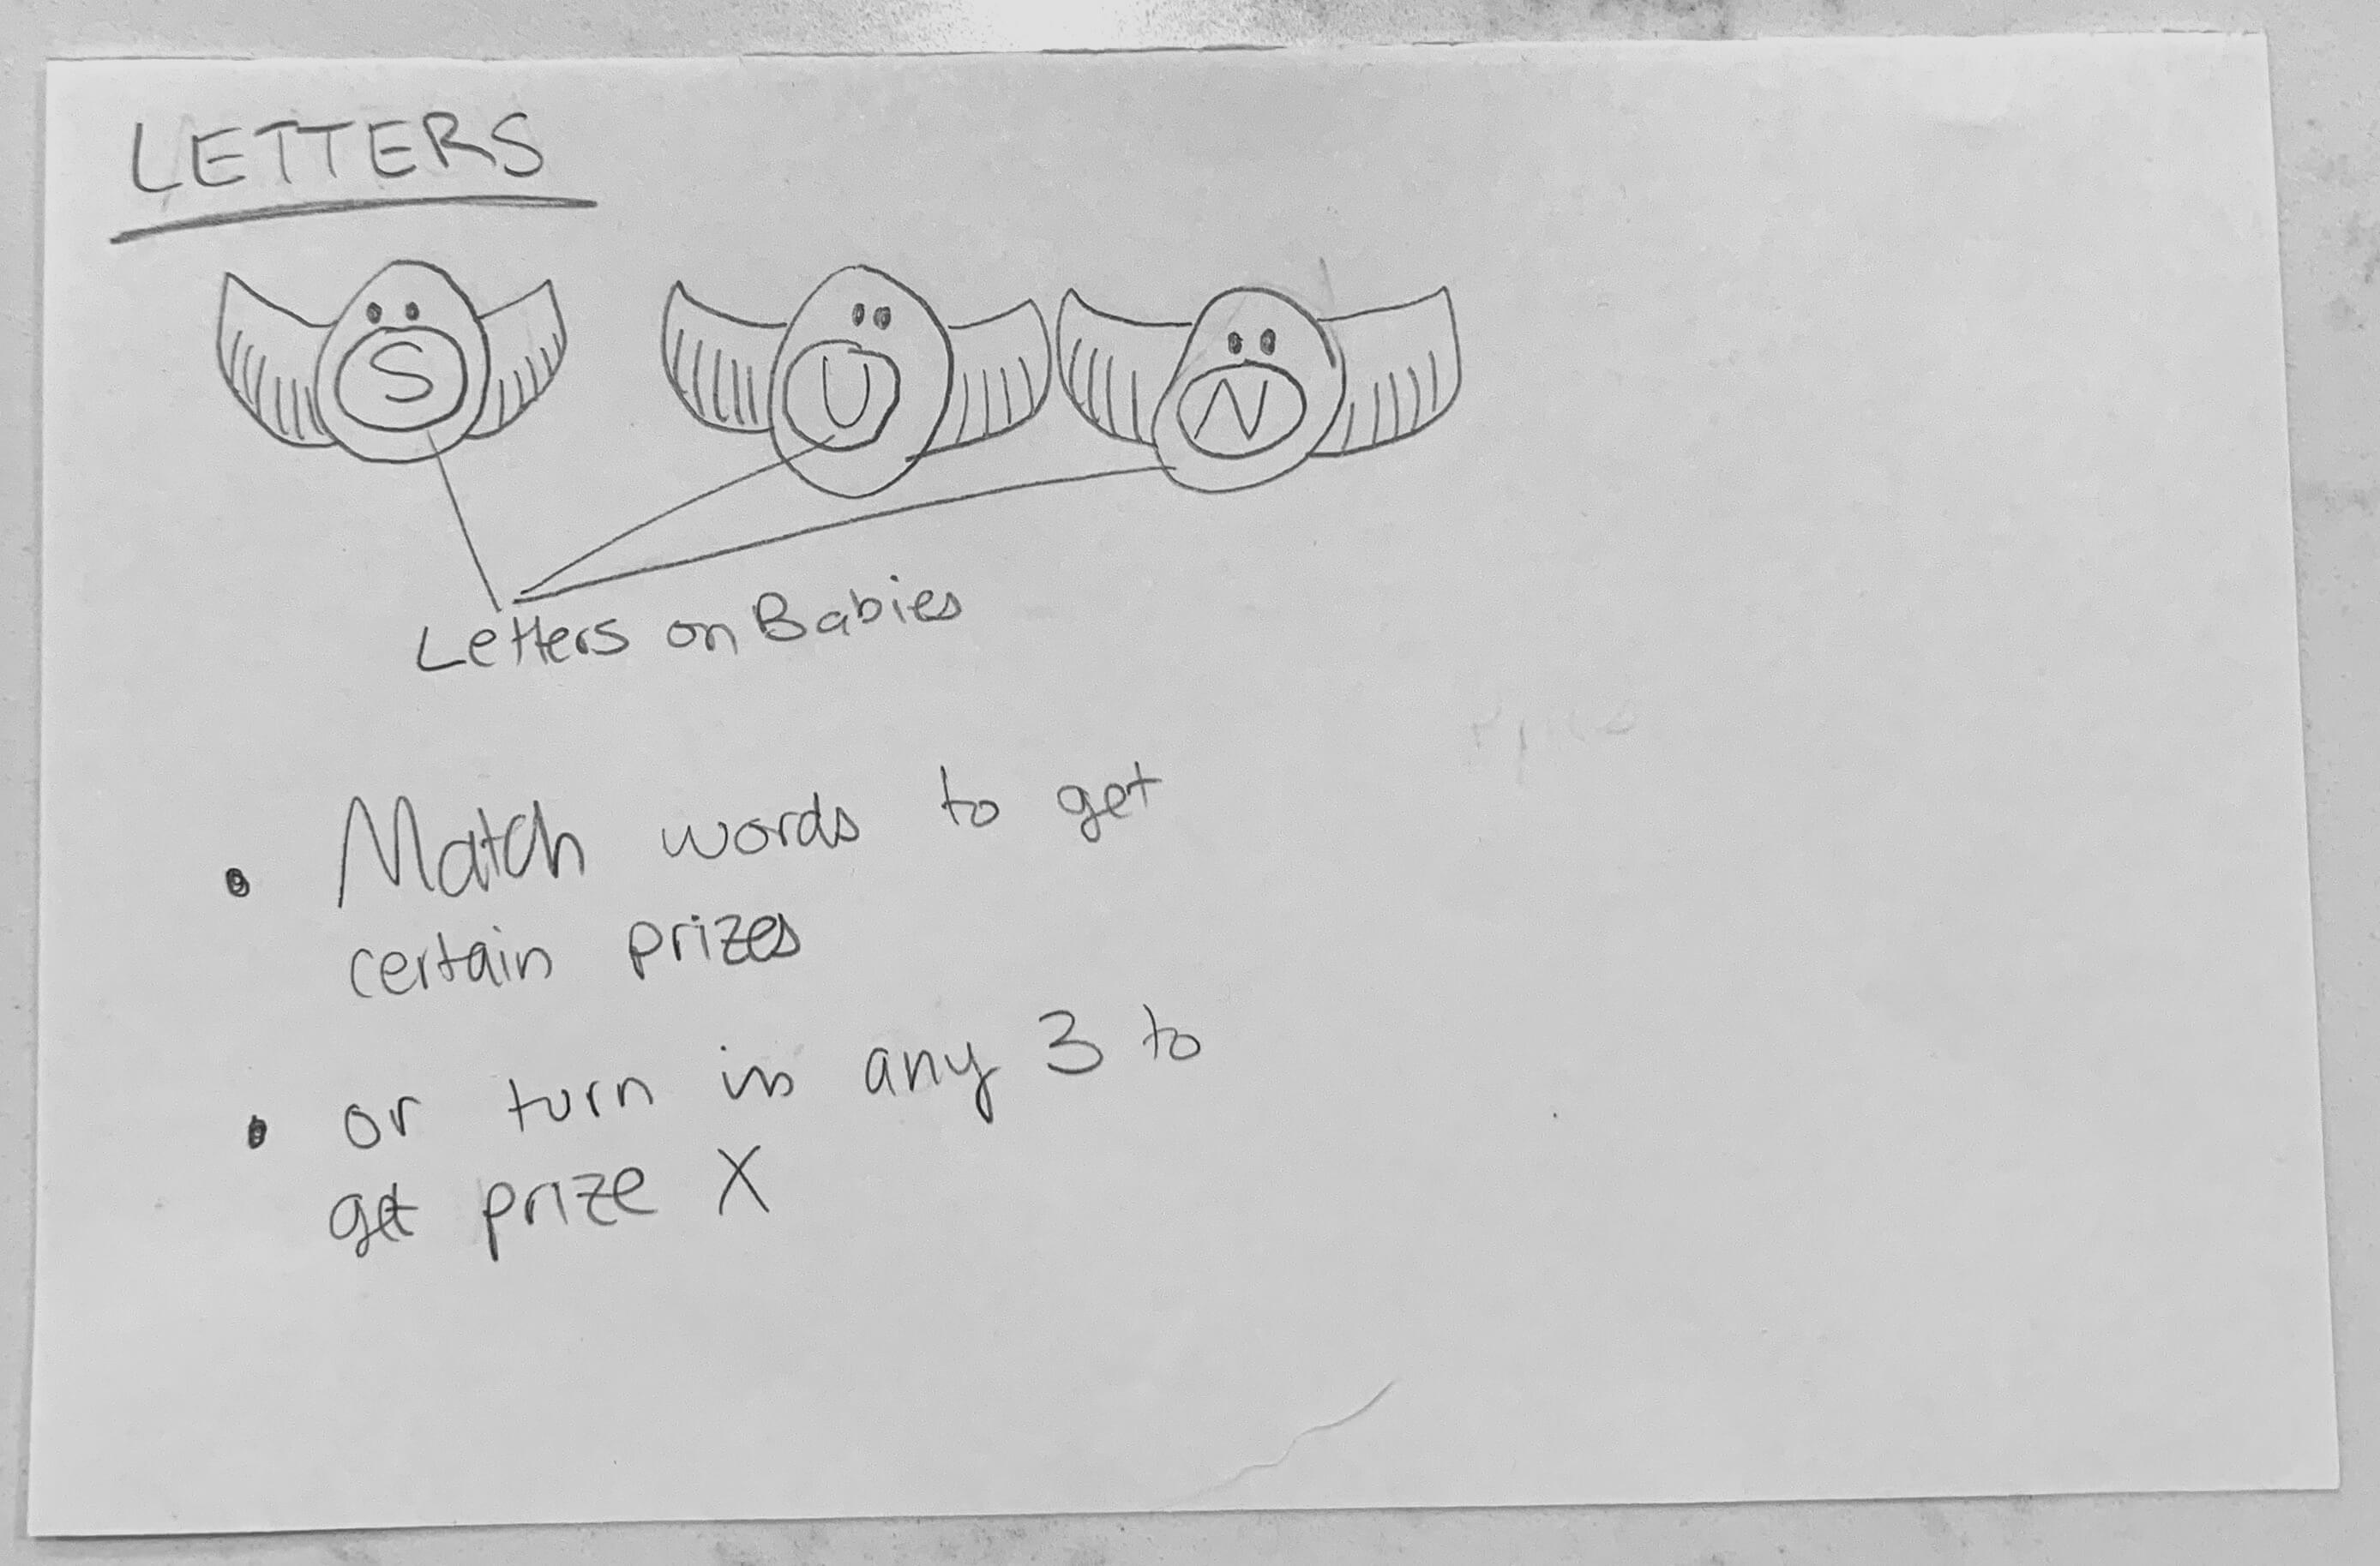 LETTERS
S U N
Letters on Babies
• Match words to get
certain prizes
• or turn in any 3 to
get prize X